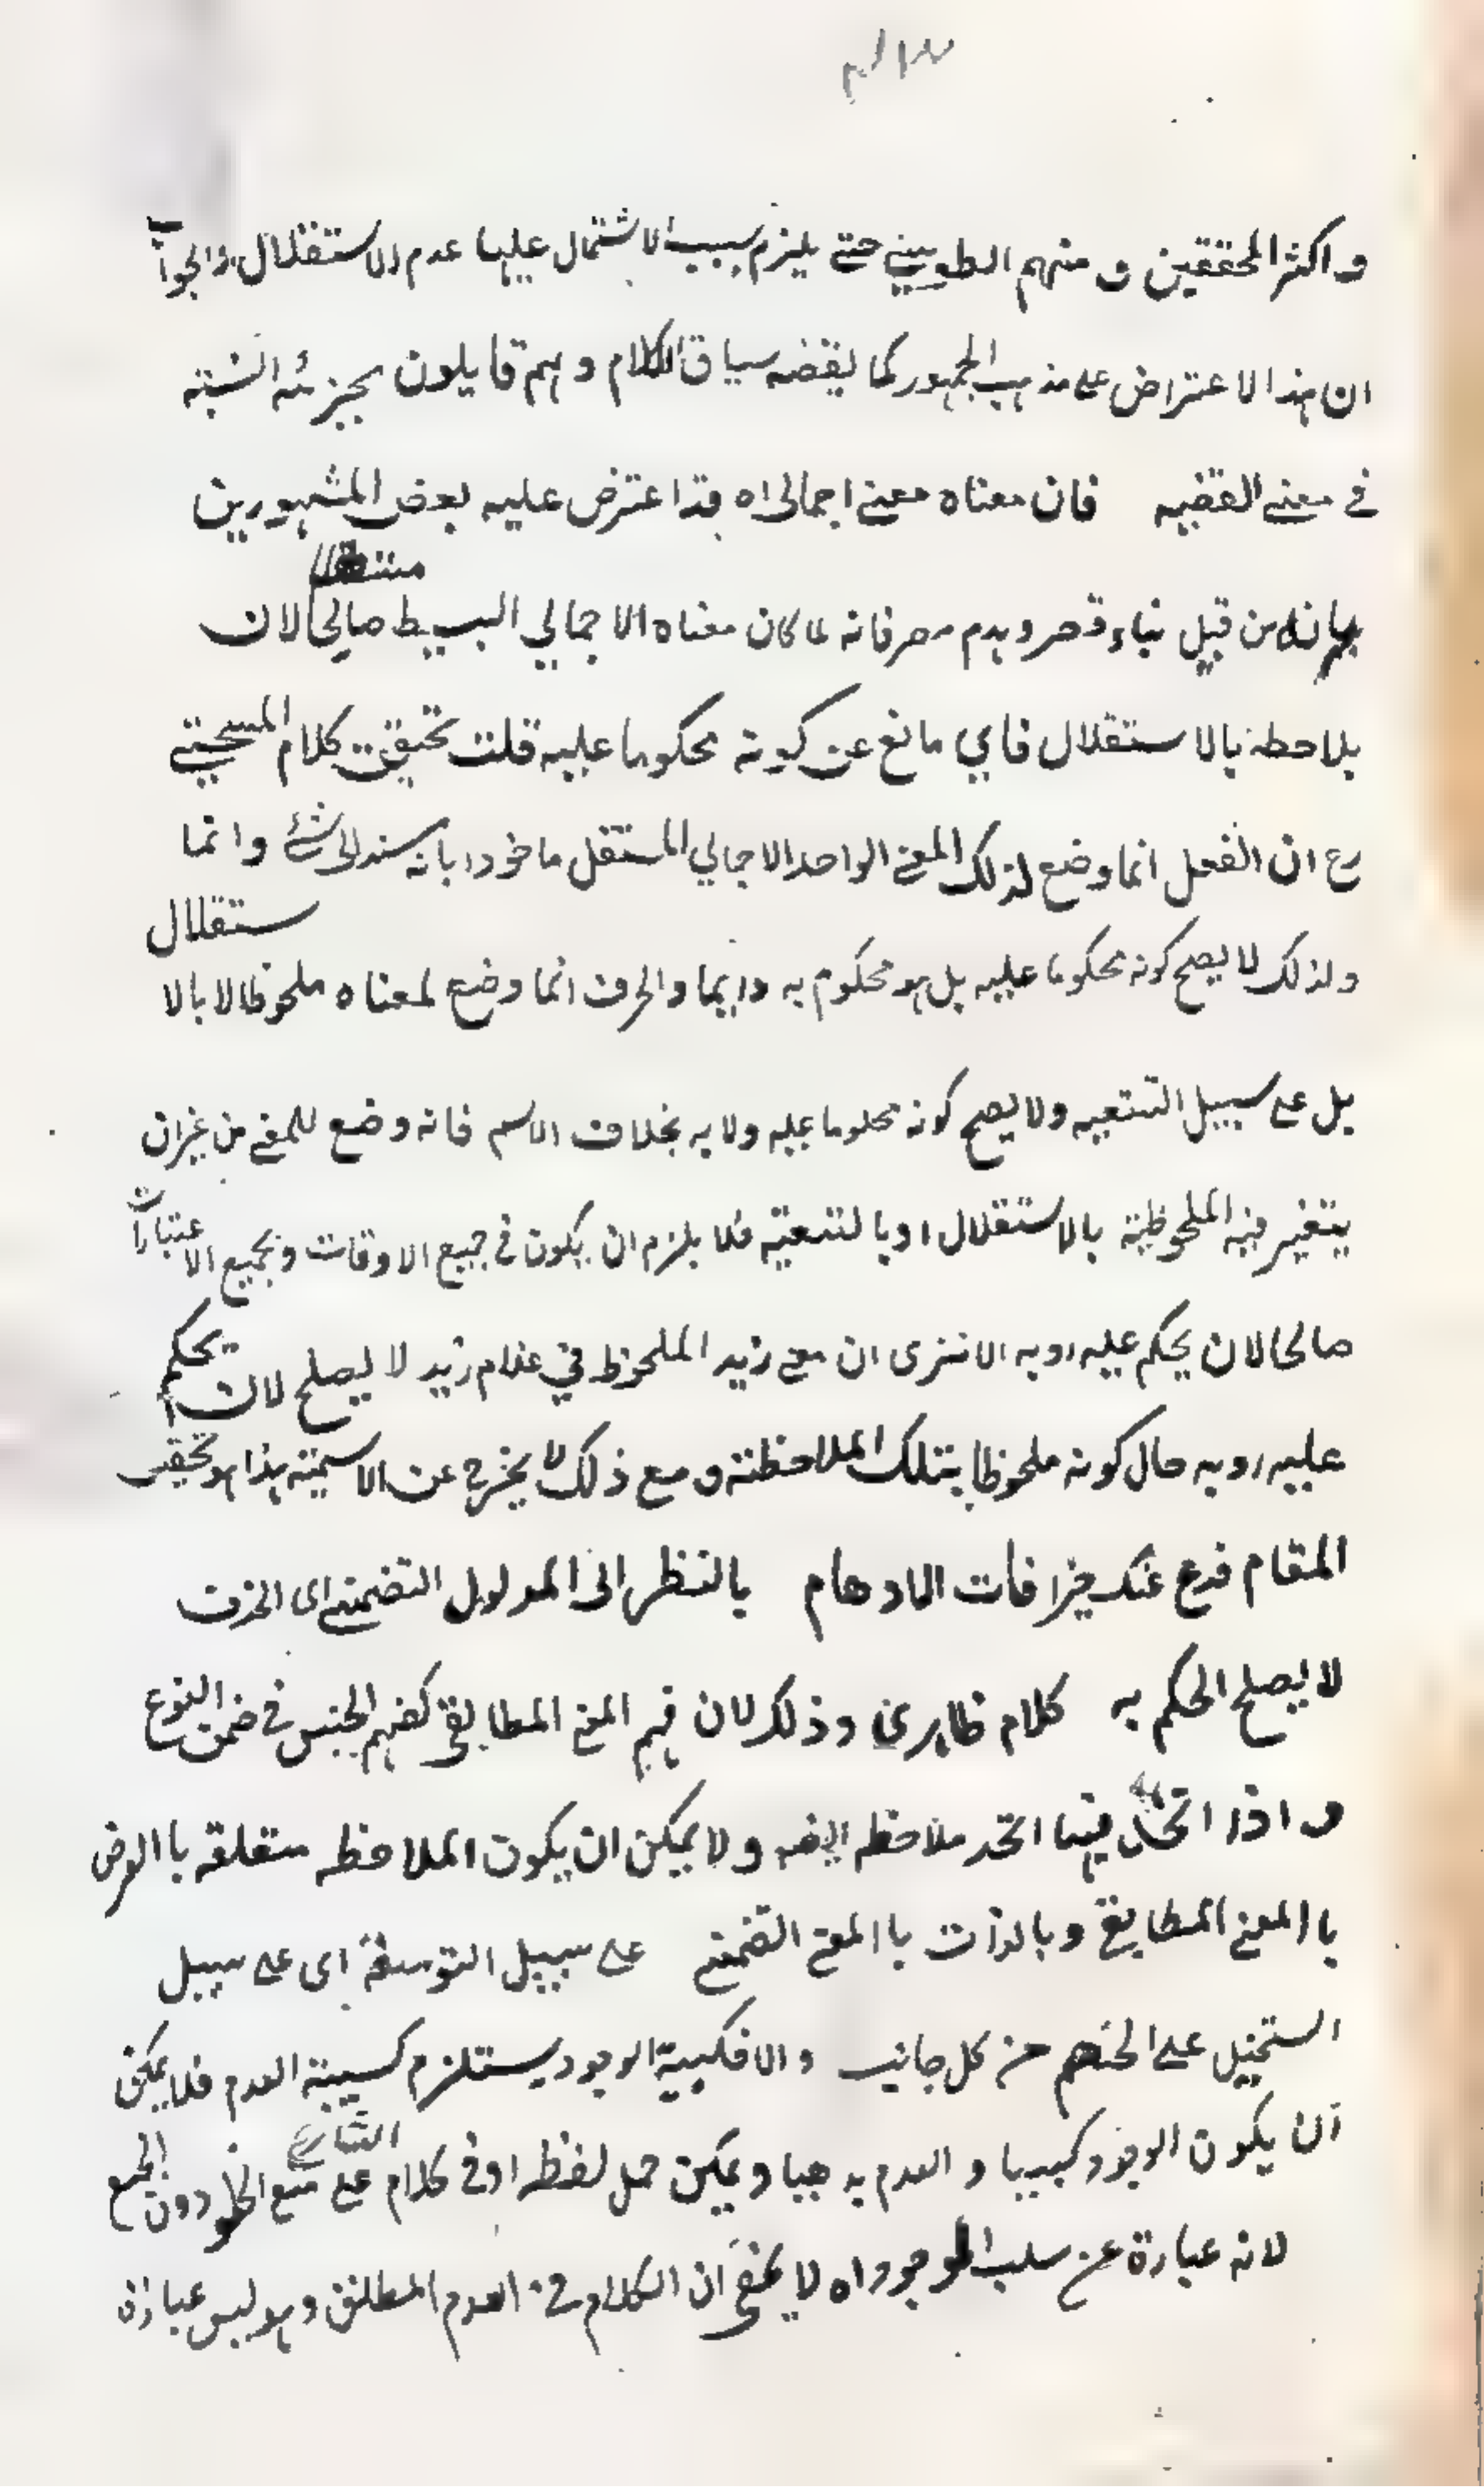 واكثر المحققين ومنهم الطوسي حتى يلزم بسبب الاشتمال عليها عدم الاستقلال والجواب
ان هذا الاعتراض على مذهب الجمهور كما يقضه سياق الكلام وهم قايلون بجزئه النسبته
في معنى القضيه فان معناه معنى اجمالى اه قد اعترض عليه بعض المشهورين
بانه من قبيل بناء قصر وهدم مصر فانه لما كان معناه الاجمالي البسيط صالحا لان
يلاحظ بالاستقلال فاي مانع عن كونه محكوما عليه قلت تحقيق كلام
رح ان الفعل انما وضع لذلك المعنى الواحد الاجمالي المستقل ماخوذا بانه مسند الى شئ وانما
ولذلك لا يصح كونه محكوما عليه بل هو محكوم به دايما والحرف انما وضع لمعناه ملحوظا لا بالا
ستقلال
بل على سبيل التبعيه ولا يصح كونه محكوما عليه ولا به بخلاف الاسم فانه وضع للمعنى من غير ان
يتغير فيه الملحوظية بالاستقلال او بالتبعية فلا يلزم ان يكون في جميع الاوقات وبجميع الاعتبارات
صالحا لان يحكم عليه او به الا ترى ان معنى زيد الملحوظ في غلام زيد لا يصلح لان يحكم
عليه او به حال كونه ملحوظا بتلك الملاحظة ومع ذلك لا يخرج عن الاسمية هذا هو تحقيق
المقام فدع عنك خرافات الاوهام بالنظر الى المدلول التضمنى اى الحرف
لا يصلح الحكم به كلام ظاهرى وذلك لان فهم المعنى المطابقى كفهم الجنس في ضمن النوع
واذا اتحد فيهما اتحد ملاحظه ايضه ولا يمكن ان يكون الملاحظه متعلقه باالعرض
باالمعنى المطابقى وبالذات باالمعنى التضمنى على سبيل التوسعة اى على سبيل
التخييل على الخصم من كل جانب والا فكيبية الوجود يستلزم كسيبة العدم فلا يمكن
ان يكون الوجود كيبيا والعدم بديهيا ويمكن حمل لفظه او في كلام الشارح على منع الخلو دون الجمع
لانه عبارة عن سلب الوجود اه لا يخفى ان الكلام في العدم المطلق وهو ليس عبارة